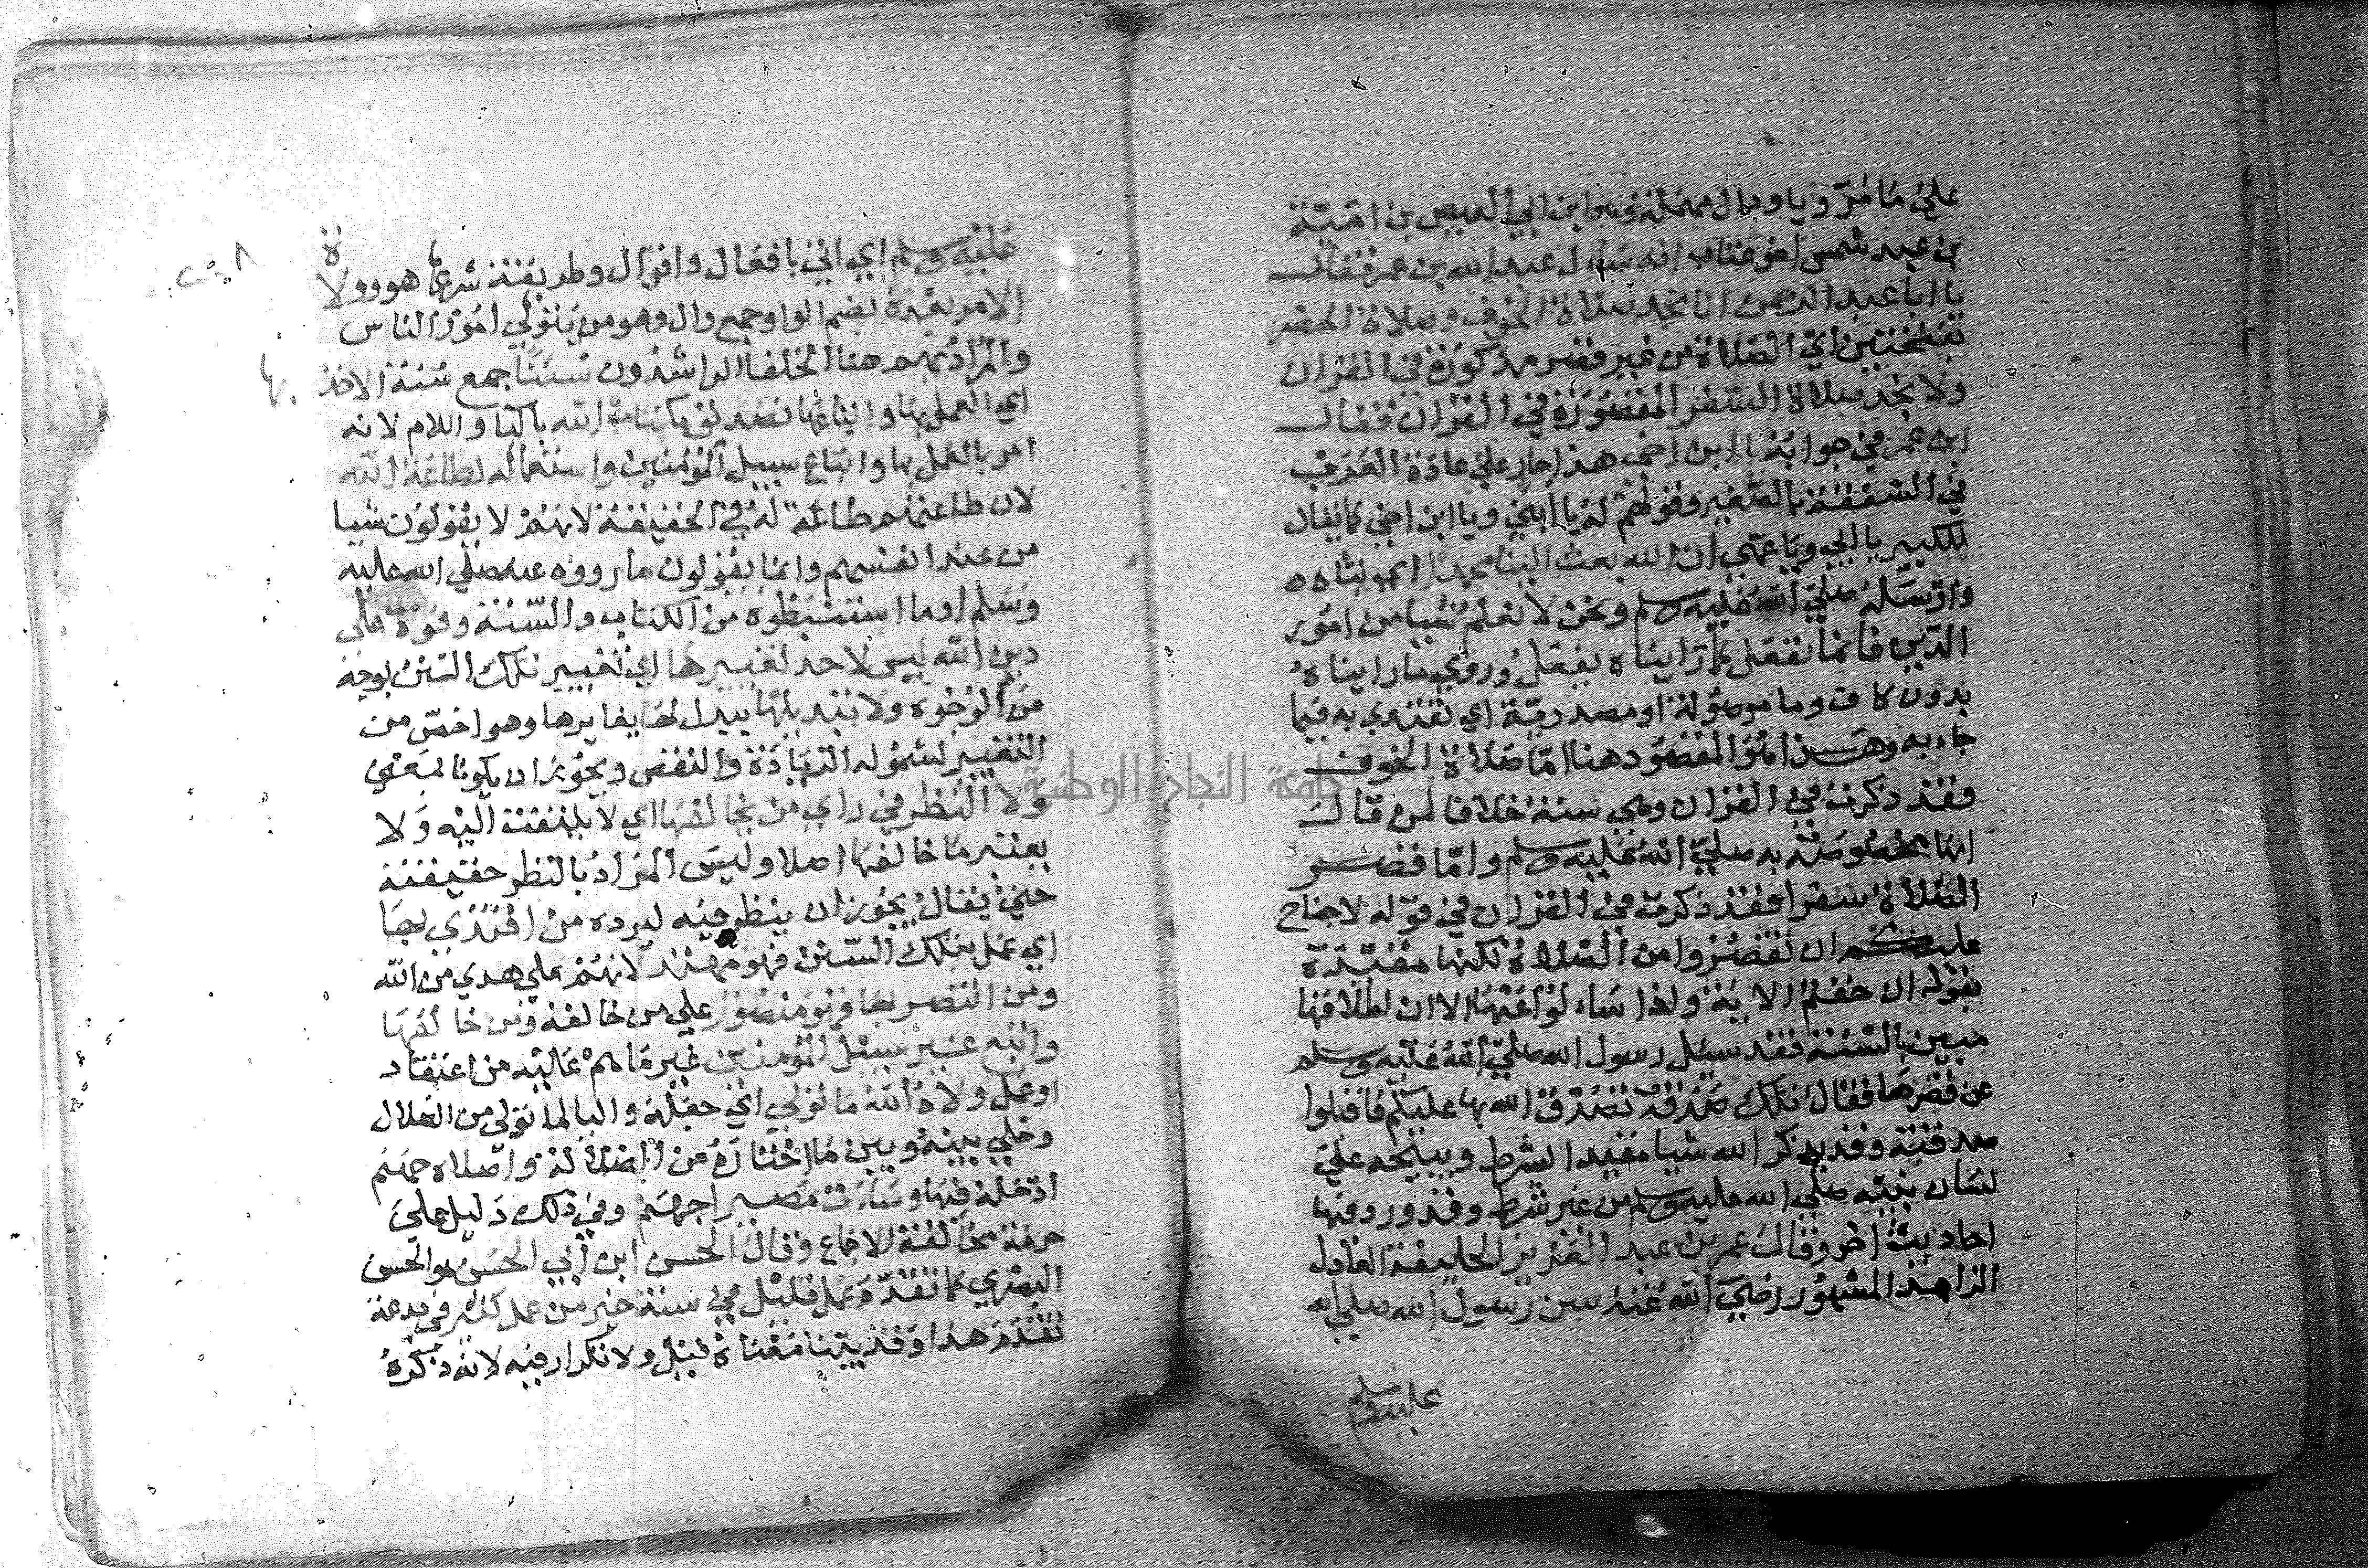 على ما مر ويا ودال مهملة وهو ابن ابي العيص بن امية
بن عبد شمس اخو عتاب انه سال عبد الله بن عمر فقال
يا ابا عبد الرحمن انا نجد صلاة الخوف وصلاة الحضر
بفتحتين اي الصلاة من غير قصر مذكورة في القران
ولا نجد صلاة السفر المقصورة في القران فقال
ابن عمر في جوابه يا ابن اخي هذا جار على عادة العرب
في الشفقة بالصغير وقولهم له يا ابني ويا ابن اخي كما يقال
للكبير يا ابي ويا عمي ان الله بعث الينا محمدا اي نباه
وارسله صلى الله عليه وسلم ونحن لا نعلم شيا من امور
الدين فانما نفعل كما رايناه يفعل وروي ما رايناه
بدون كاف وما موصولة او مصدرية اي نقتدي به فيما
جاء به وهذا هو المقصود هنا اما صلاة الخوف
فقد ذكرت في القران وهي سنة خلافا لمن قال
انها مخصوصة به صلى الله عليه وسلم واما قصر
الصلاة سفرا فقد ذكرت في القران في قوله لا جناح
عليكم ان تقصروا من الصلاة لكنها مقيدة
بقوله ان خفتم الاية ولذا سالوا عنها الا ان اطلاقها
مبين بالسنة فقد سيل رسول الله صلى الله عليه وسلم
عن قصرها فقال تلك صدقة تصدق الله بها عليكم فاقبلوا
صدقته وقد يذكر الله شيا مقيد الشرط ويبيحه على
لسان نبيه صلى الله عليه وسلم من غير شرط وقد ورد فيها
احاديث اخر وقال عمر بن عبد العزيز الخليفة العادل
الزاهد المشهور رضي الله عنه سن رسول الله صلى الله
عليه وسلم
عليه وسلم اي اتي بافعال واقوال وطريقة شرعها هو وولاة
الامر بعده بضم الواو جمع وال وهو من يتولى امور الناس
والمراد بهم هنا الخلفا الراشدون سننا جمع سنة الاخذ بها
اي العمل بها واتباعها تصديق بكتاب الله بالبا واللام لانه
امر بالعمل بها واتباع سبيل المؤمنين واستعمال لطاعة الله
لان طاعتهم طاعة له في الحقيقة لانهم لا يقولون شيا
من عند انفسهم وانما يقولون ما رووه عنه صلى الله عليه
وسلم او ما استنبطوه من الكتاب والسنة وقوة على
دين الله ليس لاحد تغييرها اي تغيير تلك السنن بوجه
من الوجوه ولا تبديلها ببدل لها يغايرها وهو اخص من
التغيير لشموله الزيادة والنقص ويجوز ان يكونا بمعنى
ولا النظر في راي من يخالفها اي لا يلتفت اليه ولا
يعتبر ما خالفها اصلا وليس المراد بالنظر حقيقته
حتى يقال يجوز ان ينظر فيه ليرده من اقتدى بها
اي عمل بتلك السنن فهو مهتد لانهم على هدي من الله
ومن انتصر بها فهو منصور على من خالفه ومن خالفها
واتبع غير سبيل المؤمنين غير ما هم عليه من اعتقاد
او عمل ولاه الله ما تولى اي جعله واليا لما تولى من الضلال
وخلي بينه وبين ما اختاره من الضلالة واصلاه جهنم
ادخله فيها وساءت مصيرا جهنم وفي ذلك دليل على
حرمة مخالفة الاجماع وقال الحسن ابن ابي الحسن هو الحسن
البصري كما تقدم عمل قليل في سنة خير من عمل كثير في بدعة
تقدم هذا وقد بينا معناه قبل ولا تكرار فيه لانه ذكره
جامعة النجاح الوطنية